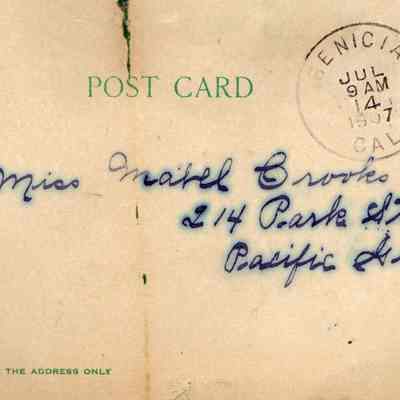 POST CARD
BENICIA
JUL
9 AM
14
1907
CAL
Miss Mabel Crooks
214 Park St
Pacific G
THE ADDRESS ONLY